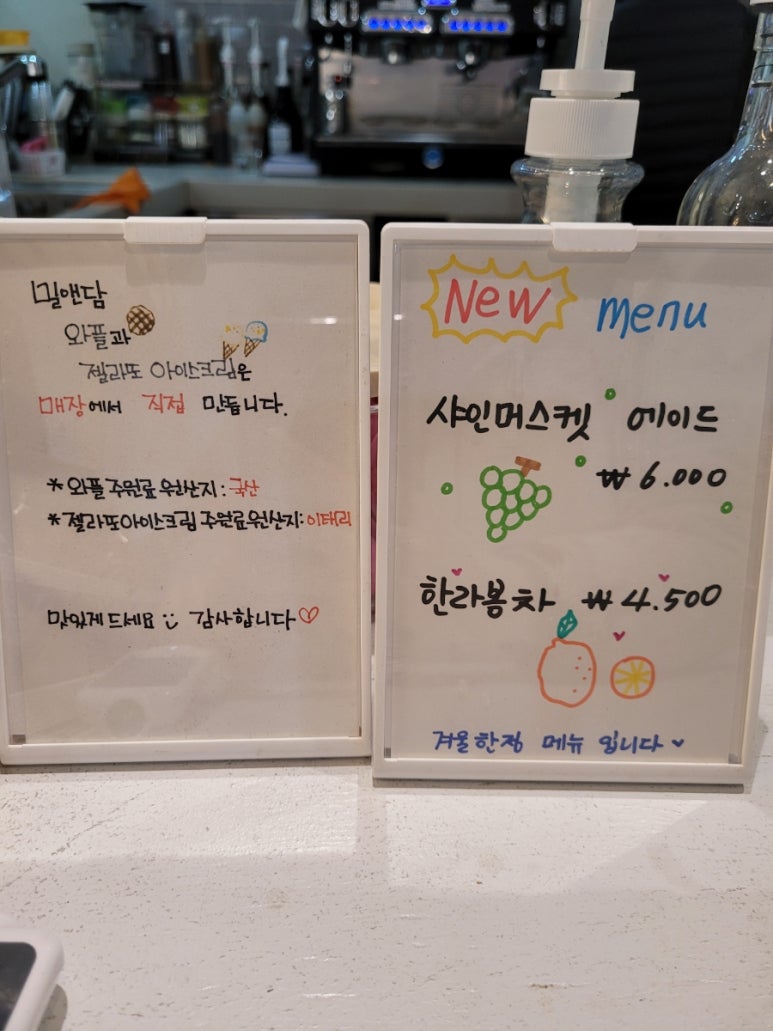 밀앤담
와플과
젤라또 아이스크림은
매장에서 직접 만듭니다.
*와플주원료원산지:국산
*젤라또아이스크림주원료원산지:이태리
맛있게드세요 감사합니다
New menu
샤인머스켓 에이드
₩6.000
한라봉차 ₩4.500
겨울한정 메뉴 입니다